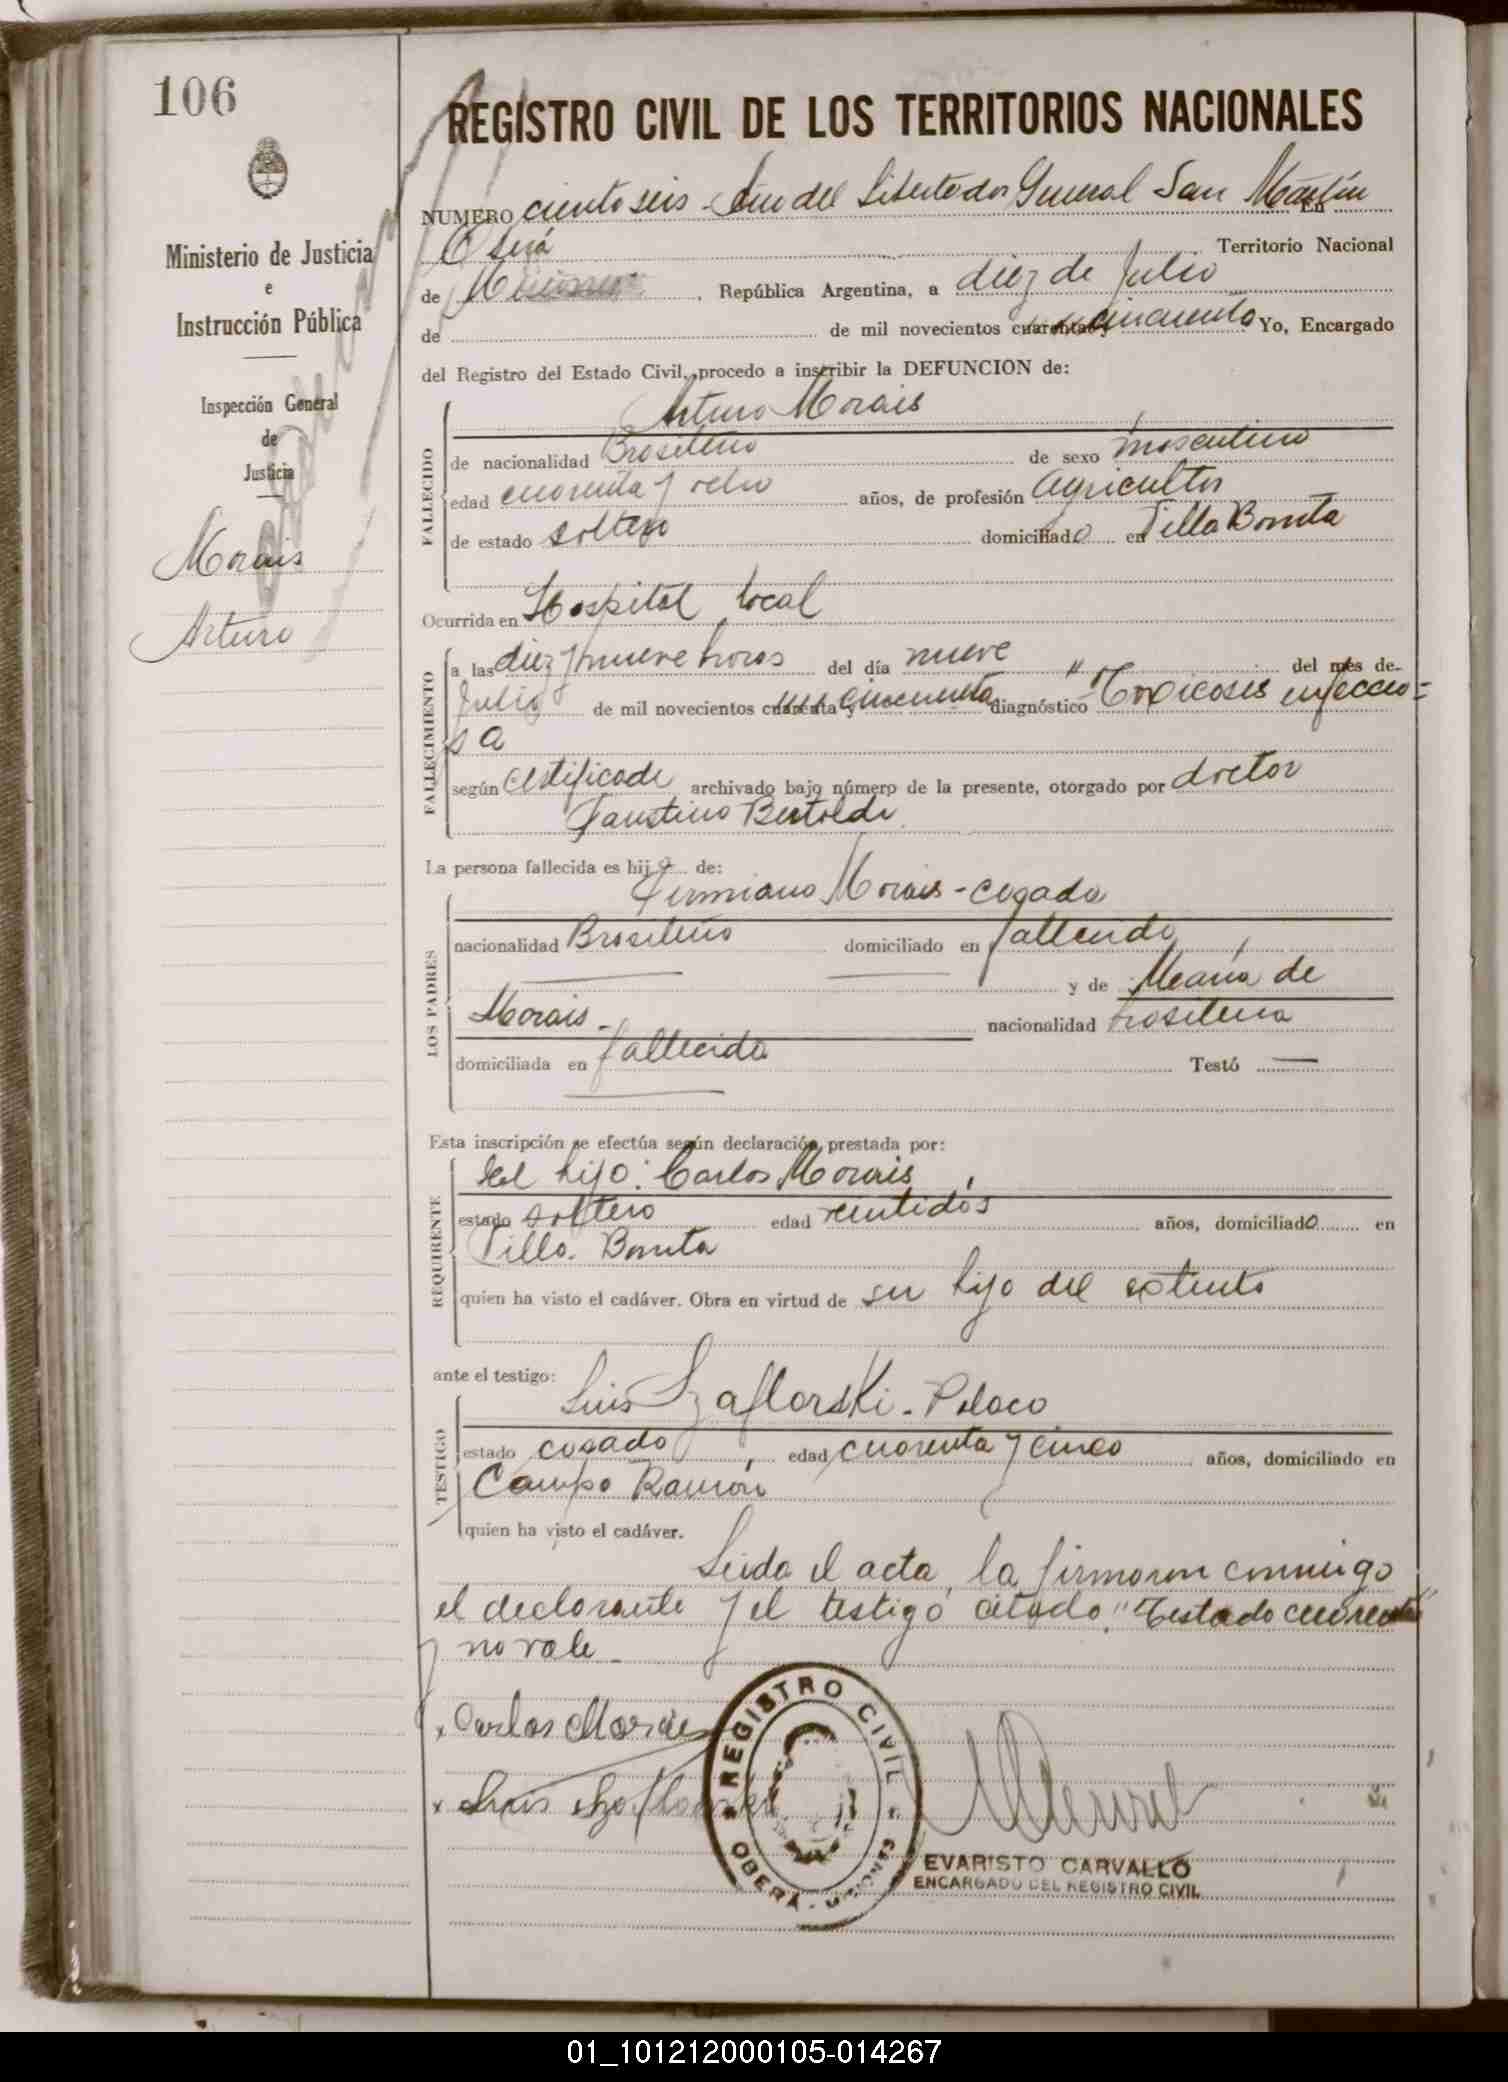 106
REGISTRO CIVIL DE LOS TERRITORIOS NACIONALES
Ministerio de Justicia
e
Instrucción Pública
Inspección General
de
Justicia
Morais
Arturo
NUMERO ciento seis Año del Libertador General San Martín En
Oberá Territorio Nacional
de Misiones, República Argentina, a diez de Julio
de de mil novecientos cuarenta y cincuenta Yo, Encargado
del Registro del Estado Civil, procedo a inscribir la DEFUNCION de:
FALLECIDO
Arturo Morais
de nacionalidad Brasileño de sexo masculino
edad cuarenta y ocho años, de profesión agricultor
de estado soltero domiciliado en Villa Bonita
Ocurrida en Hospital local
FALLECIMIENTO
a las diez y nueve horas del día nueve " del mes de
Julio de mil novecientos cuarenta y cincuenta diagnóstico "Toxicosis infeccio=
sa
según certificado archivado bajo número de la presente, otorgado por doctor
Faustino Bertoldi
La persona fallecida es hijo de:
LOS PADRES
Firmiano Morais - casado
nacionalidad Brasileño domiciliado en fallecido
y de María de
Morais - nacionalidad brasilera
domiciliada en fallecida Testó
Esta inscripción se efectúa según declaración prestada por:
REQUIRENTE
el hijo: Carlos Morais
estado soltero edad veintidós años, domiciliado en
Villa Bonita
quien ha visto el cadáver. Obra en virtud de ser hijo del extinto
ante el testigo:
TESTIGO
Luis Szaflorski - Polaco
estado casado, edad cuarenta y cinco años, domiciliado en
Campo Ramón
quien ha visto el cadáver.
Leida el acta, la firmaron conmigo
el declarante y el testigo citado. "Testado cuarenta"
y no vale -
x Carlos Morais
x Luis Szaflorski
REGISTRO CIVIL
OBERÁ - MISIONES
EVARISTO CARVALLO
ENCARGADO DEL REGISTRO CIVIL
01_101212000105-014267